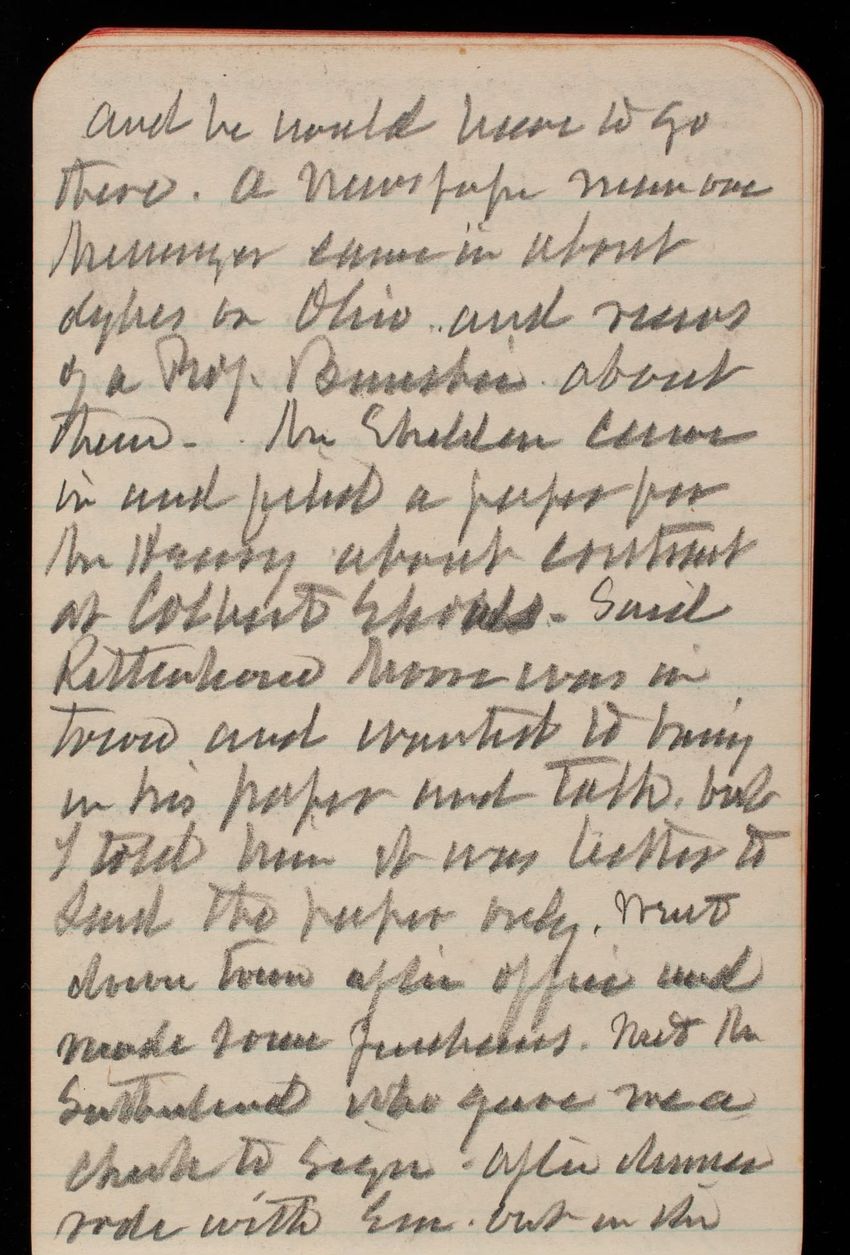 and he would have to go
there. A Newspaper man one
Messenger came in about
dykes on Ohio and news
of a Prof. about
them - Mr Sheldon came
in and filed a paper for
Mr about contract
at Colbert Shoals - Said
Rittenhouse Moore was in
town and wanted to bring
in his paper and talk. but
I told him it was better to
send the paper only. Went
down town after office and
made some purchases. Met Mr
Sutherland who gave me a
check to sign - after dinner
rode with Em. out in the